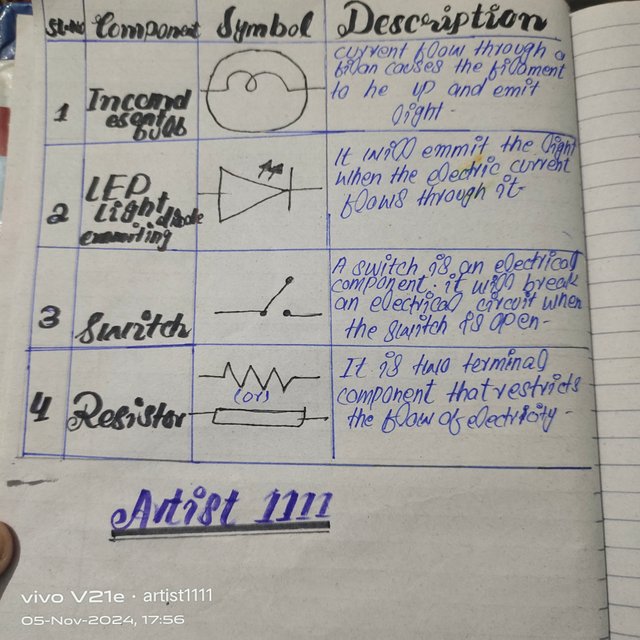 Sl-No Component Symbol Description
1
Incand
escent
bulb
current flow through a
filan causes the filament
to he up and emit
light -
2
LED
Light diode
emmiting
It will emmit the light
when the electric current
flows through it-
3
Switch
A switch is an electrical
component. it will break
an electrical circuit when
the switch is open-
4
Resistor
(or)
It is two terminal
component that restricts
the flow of electricity -
Artist 1111
vivo V21e · artist1111
05-Nov-2024, 17:56